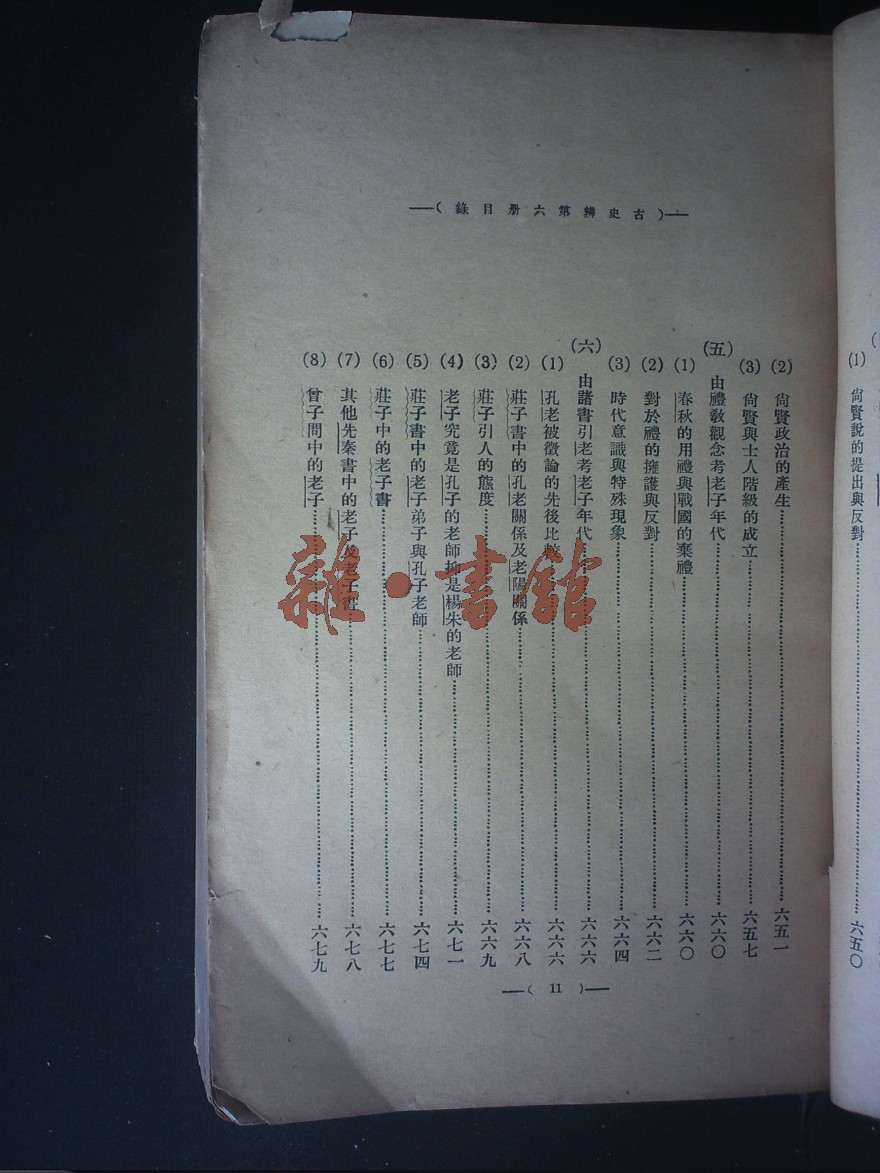 (1) 尙賢說的提出與反對……六五〇
——(古史辨第六册目錄)——
(2) 尙賢政治的產生……六五一
(3) 尙賢與士人階級的成立……六五七
(五) 由禮敎觀念考老子年代……六六〇
(1) 春秋的用禮與戰國的棄禮……六六〇
(2) 對於禮的擁護與反對……六六二
(3) 時代意識與特殊現象……六六四
(六) 由諸書引老考老子年代……六六六
(1) 孔老被徵論的先後比較……六六六
(2) 莊子書中的孔老關係及老陽關係……六六八
(3) 莊子引人的態度……六六九
(4) 老子究竟是孔子的老師抑是楊朱的老師……六七一
(5) 莊子書中的老子弟子與孔子老師……六七四
(6) 莊子中的老子書……六七七
(7) 其他先秦書中的老子及老子書……六七八
(8) 曾子問中的老子……六七九
——( 11 )——
雜·書館